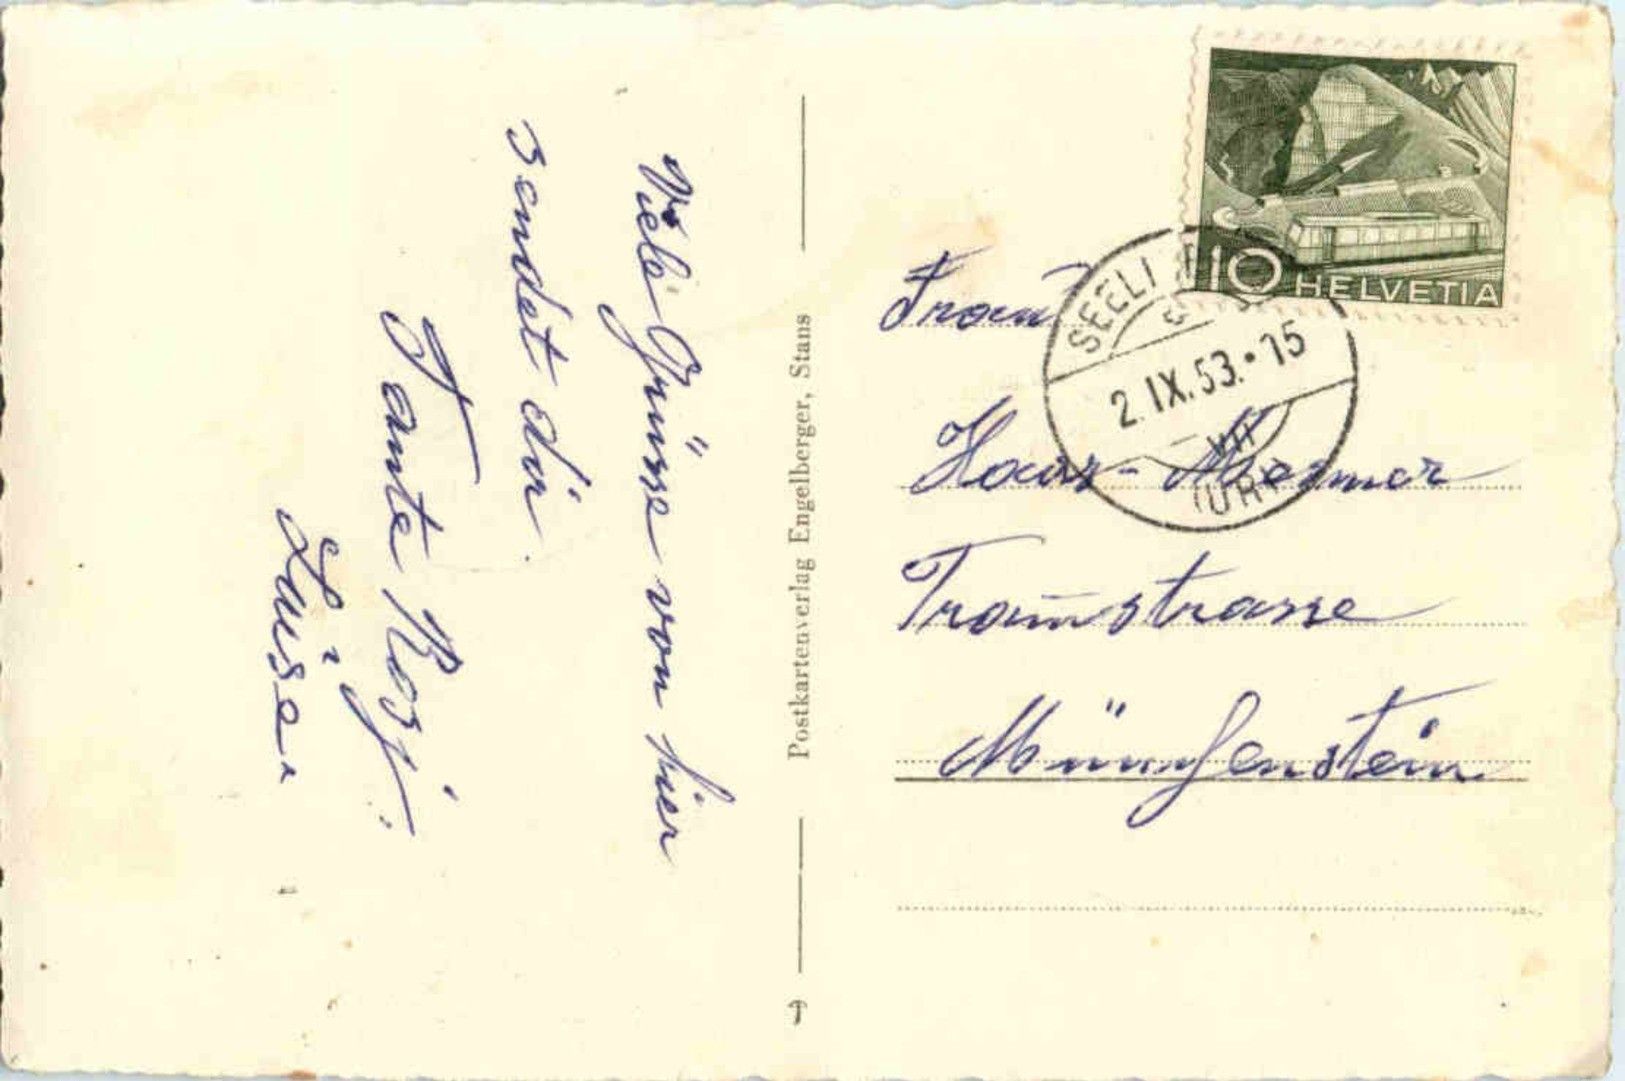 Viele Grüsse von hier
sendet dir
Tante Rosj.
Luise
Postkartenverlag Engelberger, Stans
10 HELVETIA
SEELI
2. IX. 53. 15
VIII
(URI)
Frau
Tramstrasse
Münchenstein